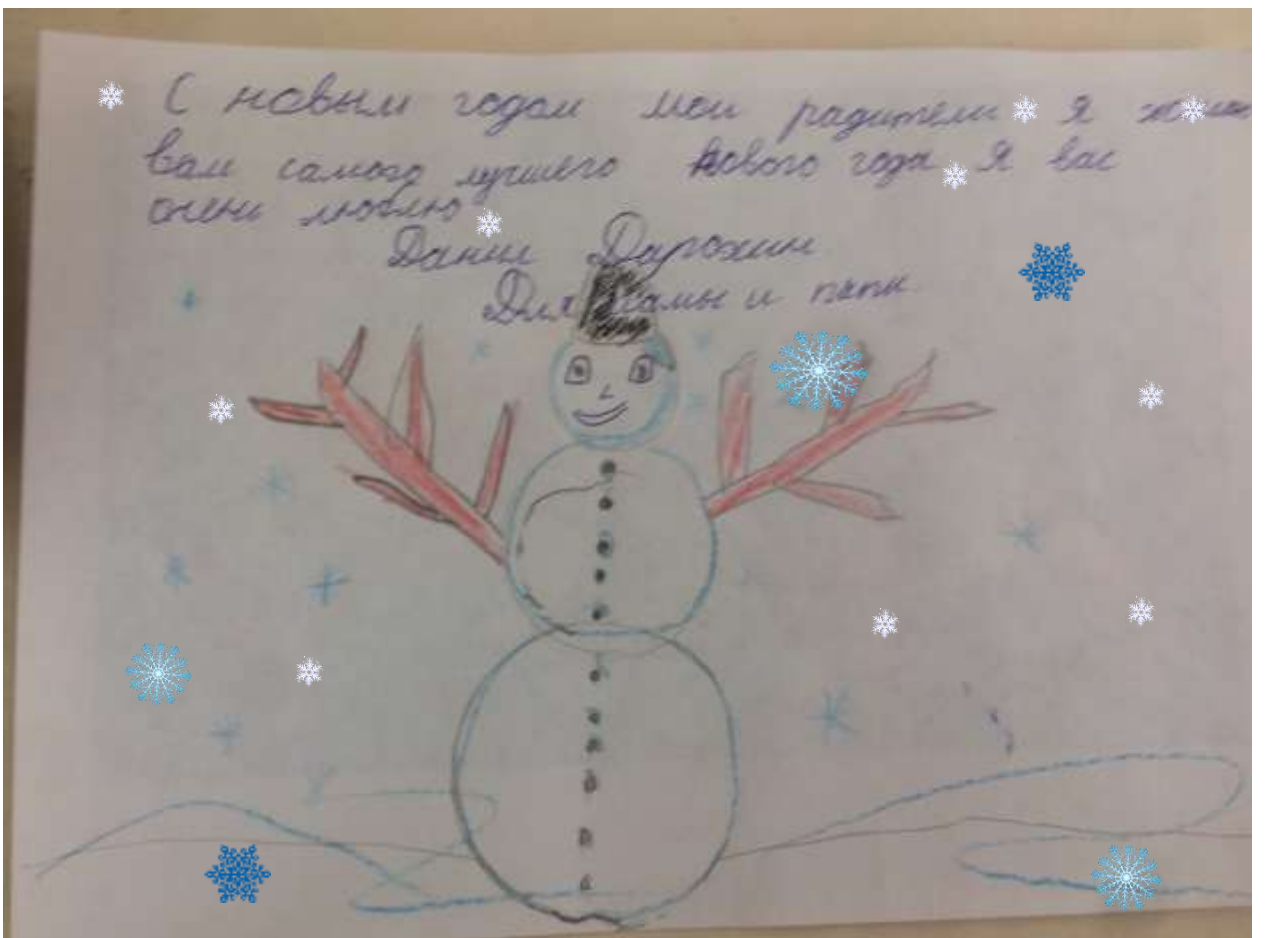 С новым годом мои радители я желаю
вам самого лучшего нового года Я вас
очень люблю
Данил Дарохин
Для мамы и папы.